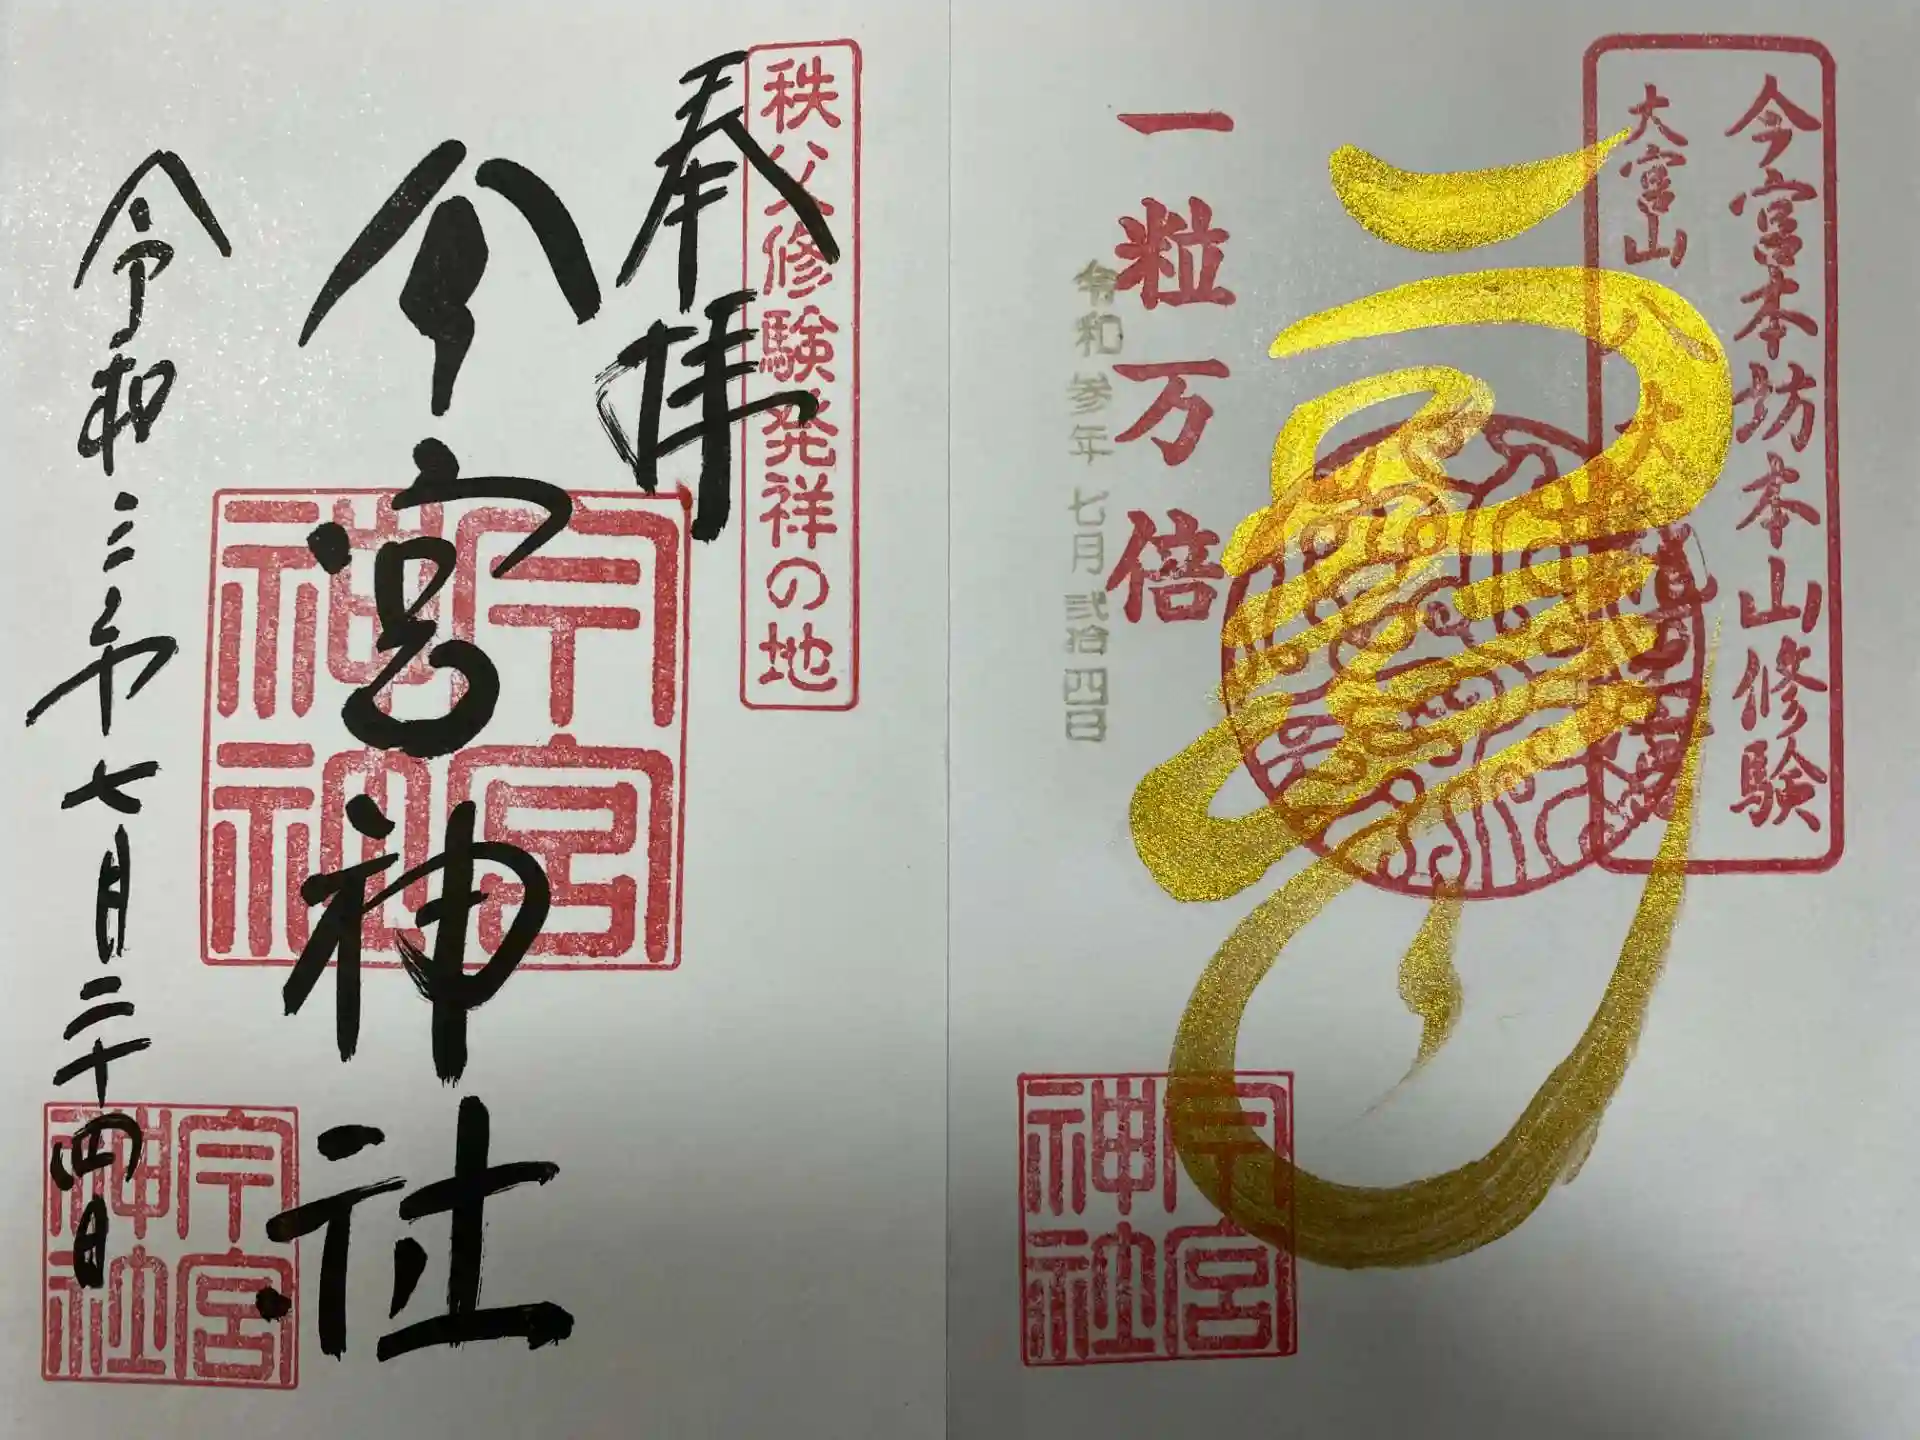 今宮本坊本山修験
大宮山
八大龍宮
一粒万倍
令和参年七月弐拾四日
今宮神社
秩父修験発祥の地
奉拝
今宮神社
今宮神社
令和三年七月二十四日
今宮神社